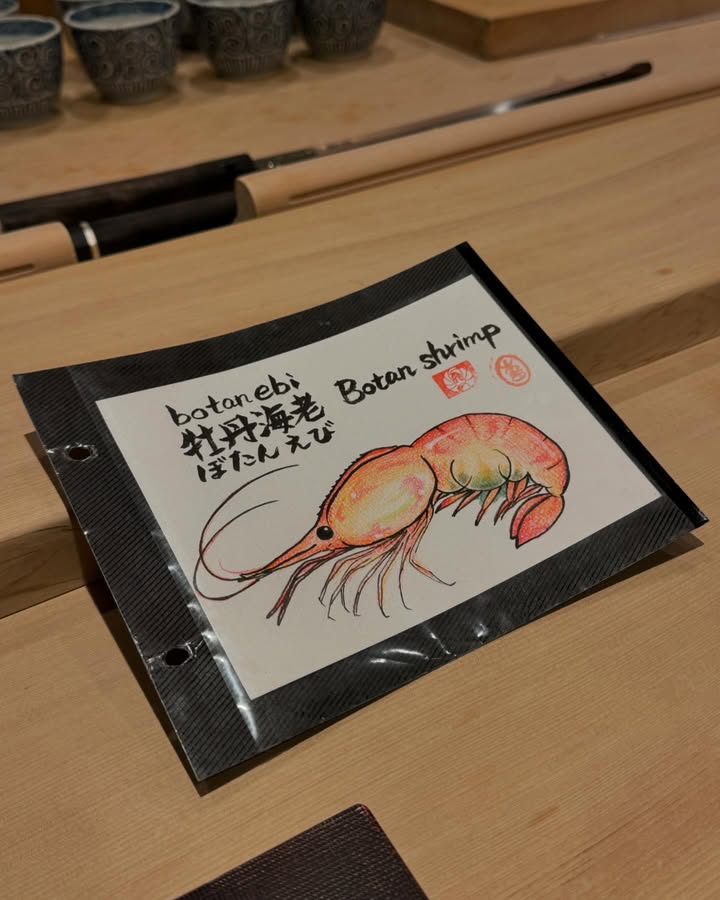 botan ebi
牡丹海老
ぼたんえび
Botan shrimp